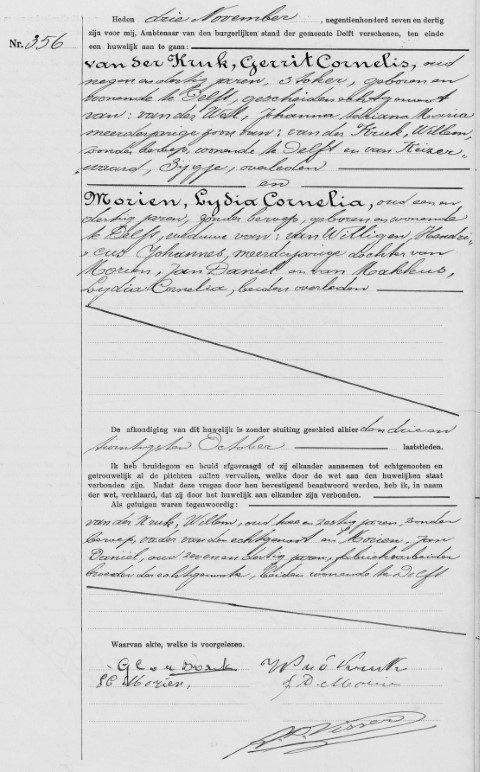 Heden drie November, negentienhonderd zeven en dertig
zijn voor mij, Ambtenaar van den burgerlijken stand der gemeente Delft verschenen, ten einde
een huwelijk aan te gaan:
Nr. 356
van der Kruk, Gerrit Cornelis, oud
negen en dertig jaren, stoker, geboren en
wonende te Delft, gescheiden echtgenoot
van: van der Welt, Johanna Adriana Maria
meerderjarige zoon van: van der Kruk, Willem,
zonder beroep, wonende te Delft en van Keizer-
waard, Zijgje, overleden
en
Morien, Lydia Cornelia, oud een en
dertig jaren, zonder beroep, geboren en wonende
te Delft, weduwe van: van Willigen, Hendri-
cus Johannes, meerderjarige dochter van
Morien, Jan Daniel en van Makkus,
Lydia Cornelia, beiden overleden
De afkondiging van dit huwelijk is zonder stuiting geschied alhier den drie en
twintigsten October laatstleden.
Ik heb bruidegom en bruid afgevraagd of zij elkander aannemen tot echtgenooten en
getrouwelijk al de plichten zullen vervullen, welke door de wet aan den huwelijken staat
verbonden zijn. Nadat deze vragen door hen bevestigend beantwoord werden, heb ik, in naam
der wet, verklaard, dat zij door het huwelijk aan elkander zijn verbonden.
Als getuigen waren tegenwoordig:
van der Kruk, Willem, oud twee en zestig jaren, zonder
beroep, vader van den echtgenoot en Morien, Jan
Daniel, oud zeven en dertig jaren, fabrieksarbeider
broeder der echtgenoote, beiden wonende te Delft
Waarvan akte, welke is voorgelezen.
G C v d Kruk W v d Kruk
L C Morien. J D Morien
Visser